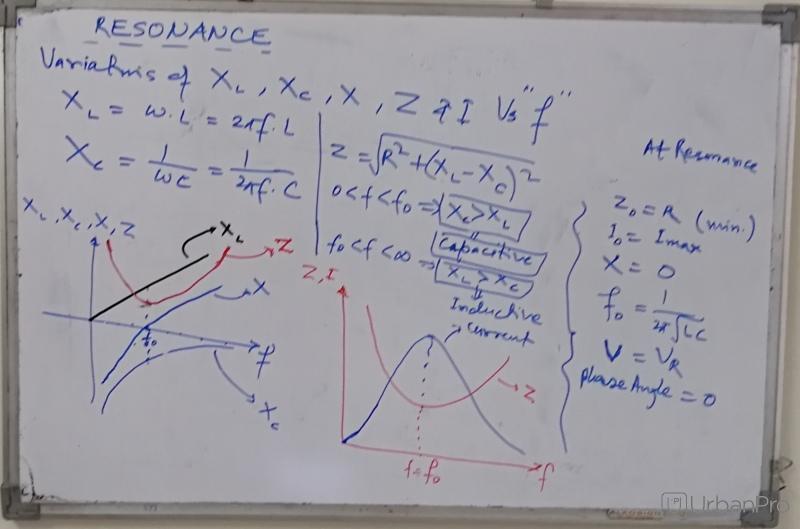 RESONANCE
Variations of X_L, X_C, X, Z & I Vs "f"
X_L = ω.L = 2πf.L
X_C = 1/ωC = 1/2πf.C
Z = √R² + (X_L - X_C)²
0 < f < f₀ ⇒ X_C > X_L
Capacitive
f₀ < f < ∞ ⇒ X_L > X_C
Inductive
At Resonance
Z₀ = R (min.)
I₀ = Imax
X = 0
f₀ = 1/2π√LC
V = V_R
phase Angle = 0
X_L, X_C, X, Z
X_L
Z
X
f₀
f
X_C
Z, I
current
Z
f = f₀
f
UrbanPro